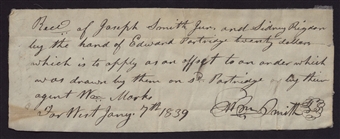 Recd of Joseph Smith Jun. and Sidney Rigdon
by the hand of Edward Partridge twenty dollars
which is to apply as an offset to an order which
was drawn by them on sd Partridge by their
agent Wm Marks
Far West Jany. 7th 1839 Wm Smith